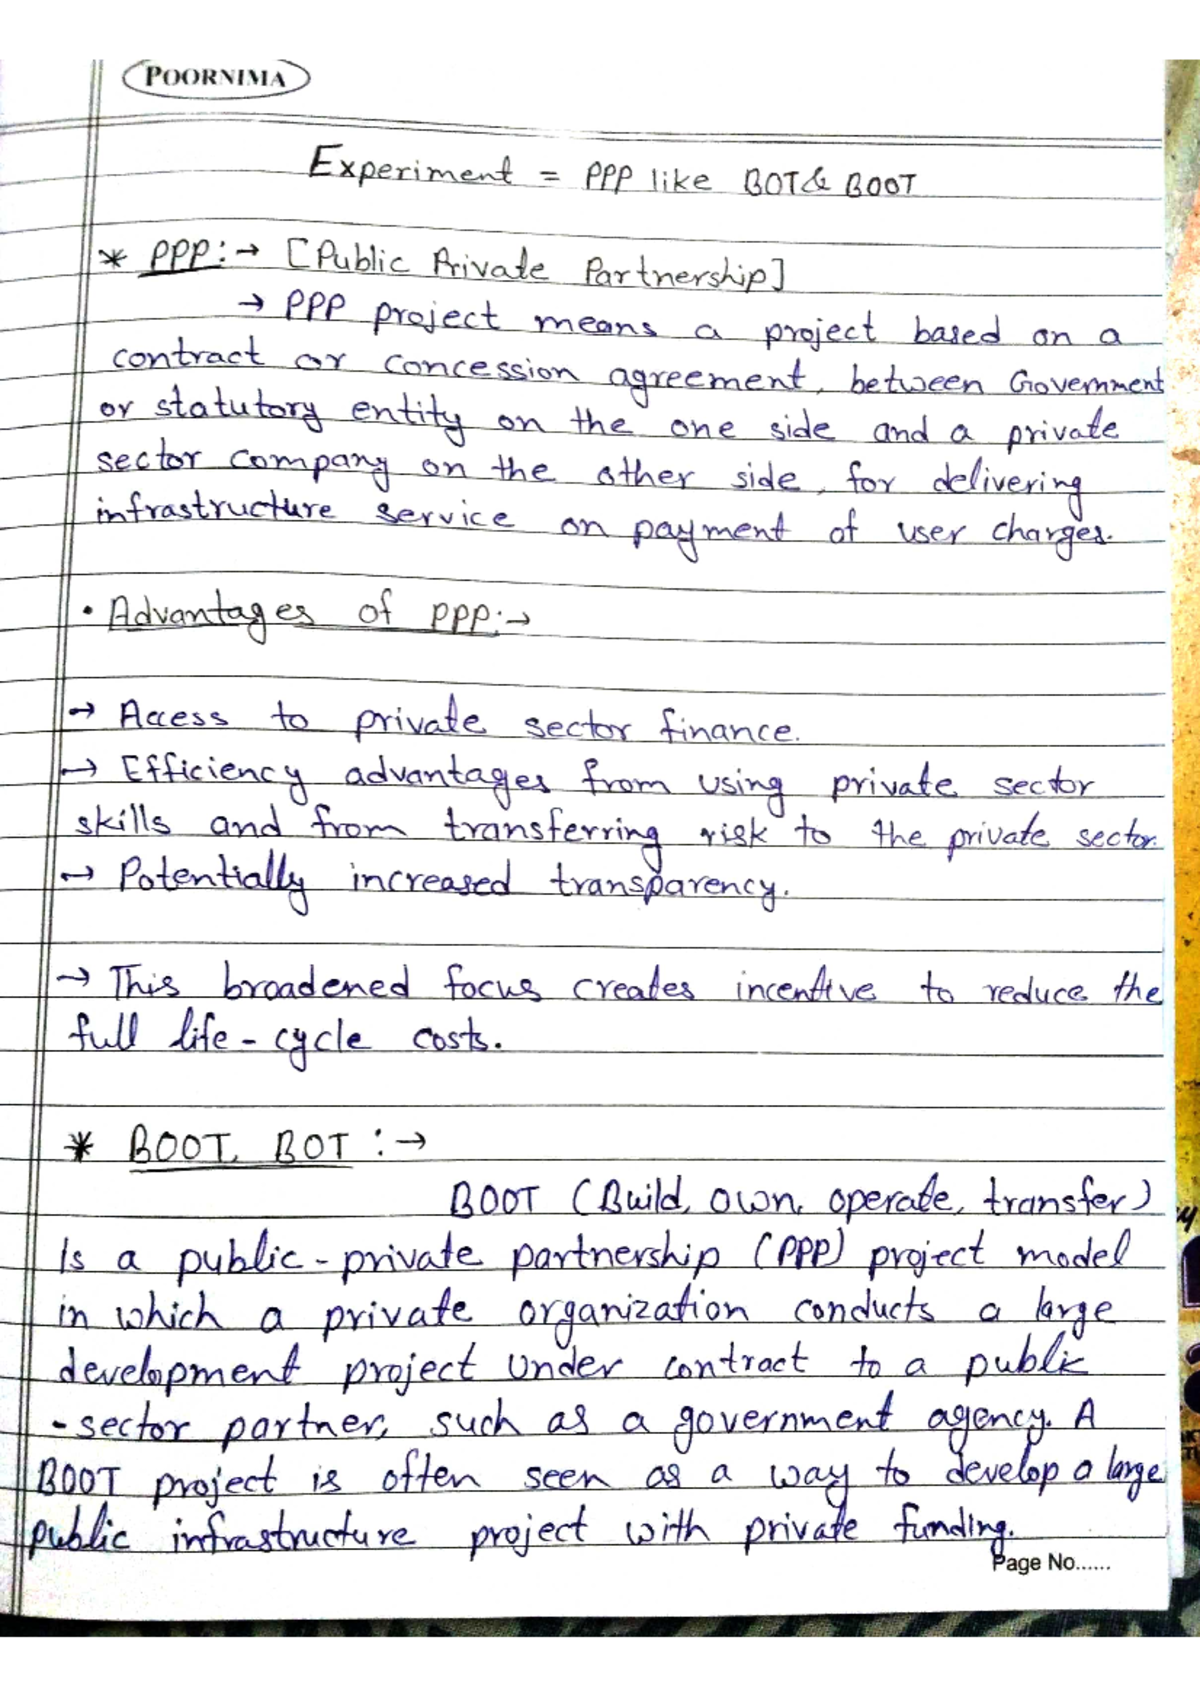 POORNIMA
Experiment = PPP like BOT & BOOT
* PPP :→ [Public Private Partnership]
→ PPP project means a project based on a
contract or concession agreement, between Government
or statutory entity on the one side and a private
sector company on the other side, for delivering
infrastructure service on payment of user charges.
• Advantages of PPP :→
→ Access to private sector finance.
→ Efficiency advantages from using private sector
skills and from transferring risk to the private sector.
→ Potentially increased transparency.
→ This broadened focus creates incentive to reduce the
full life-cycle costs.
* BOOT, BOT :→
BOOT (Build, own, operate, transfer)
Is a public-private partnership (PPP) project model
in which a private organization conducts a large
development project under contract to a public
-sector partner, such as a government agency. A
BOOT project is often seen as a way to develop a large
public infrastructure project with private funding.
Page No......